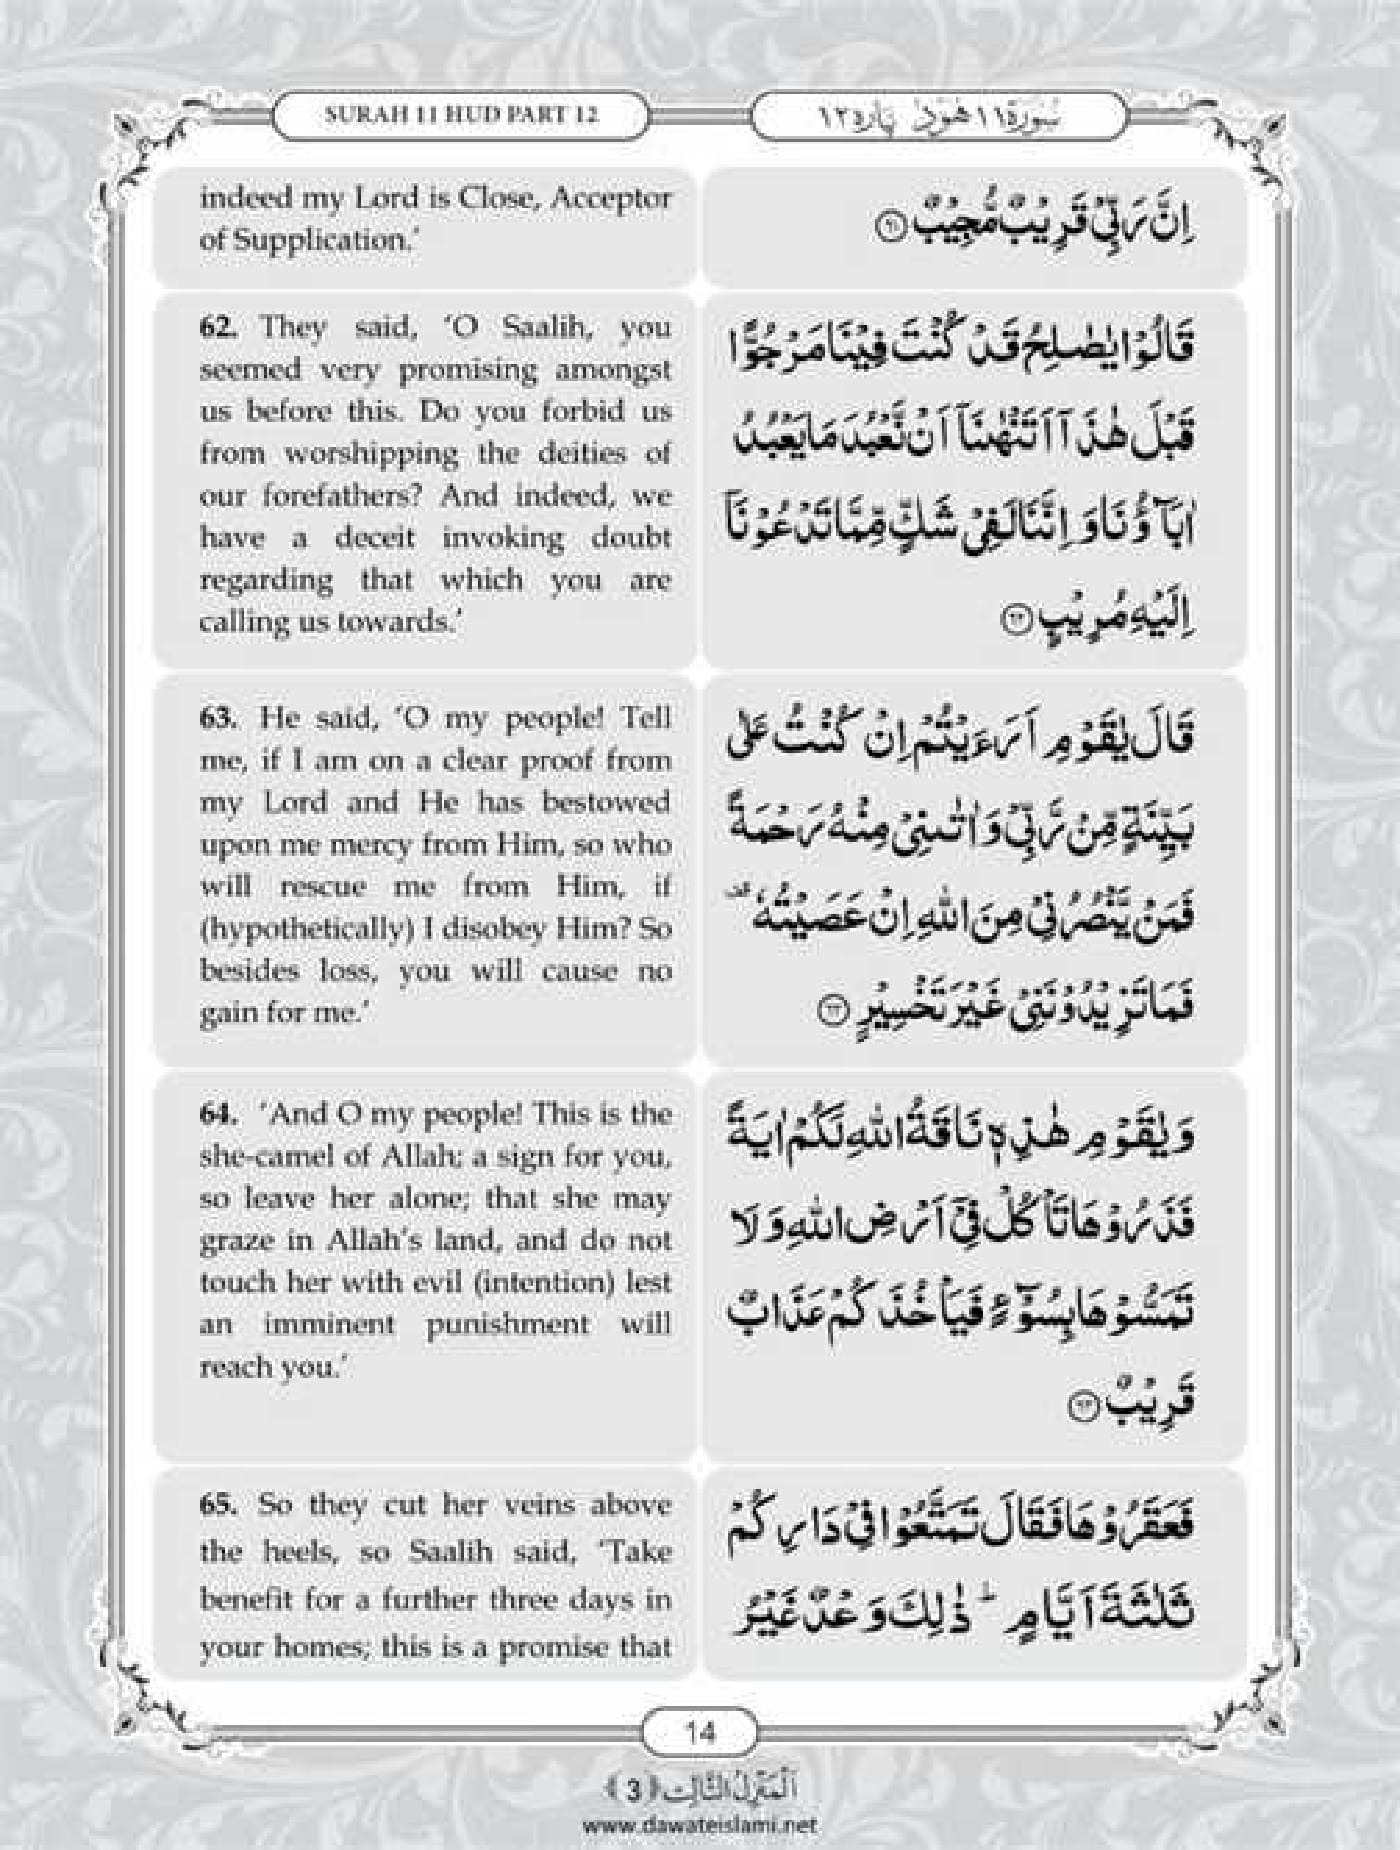 SURAH 11 HUD PART 12
سُوْرَة ١١ هُوْد پارہ ١٢
indeed my Lord is Close, Acceptor
of Supplication.’
اِنَّ رَبِّیْ قَرِیْبٌ مُّجِیْبٌ ﴿۶۱﴾
62. They said, ‘O Saalih, you
seemed very promising amongst
us before this. Do you forbid us
from worshipping the deities of
our forefathers? And indeed, we
have a deceit invoking doubt
regarding that which you are
calling us towards.’
قَالُوْا یٰصٰلِحُ قَدْ کُنْتَ فِیْنَا مَرْجُوًّا
قَبْلَ هٰذَاۤ اَتَنْهٰىنَاۤ اَنْ نَّعْبُدَ مَا یَعْبُدُ
اٰبَآؤُنَا وَ اِنَّنَا لَفِیْ شَکٍّ مِّمَّا تَدْعُوْنَاۤ
اِلَیْهِ مُرِیْبٍ ﴿۶۲﴾
63. He said, ‘O my people! Tell
me, if I am on a clear proof from
my Lord and He has bestowed
upon me mercy from Him, so who
will rescue me from Him, if
(hypothetically) I disobey Him? So
besides loss, you will cause no
gain for me.’
قَالَ یٰقَوْمِ اَرَءَیْتُمْ اِنْ کُنْتُ عَلٰی
بَیِّنَةٍ مِّنْ رَّبِّیْ وَ اٰتٰىنِیْ مِنْهُ رَحْمَةً
فَمَنْ یَّنْصُرُنِیْ مِنَ اللّٰهِ اِنْ عَصَیْتُهٗ ۟
فَمَا تَزِیْدُوْنَنِیْ غَیْرَ تَخْسِیْرٍ ﴿۶۳﴾
64. ‘And O my people! This is the
she-camel of Allah; a sign for you,
so leave her alone; that she may
graze in Allah’s land, and do not
touch her with evil (intention) lest
an imminent punishment will
reach you.’
وَ یٰقَوْمِ هٰذِهٖ نَاقَةُ اللّٰهِ لَکُمْ اٰیَةً
فَذَرُوْهَا تَاْکُلْ فِیْۤ اَرْضِ اللّٰهِ وَ لَا
تَمَسُّوْهَا بِسُوْٓءٍ فَیَاْخُذَکُمْ عَذَابٌ
قَرِیْبٌ ﴿۶۴﴾
65. So they cut her veins above
the heels, so Saalih said, ‘Take
benefit for a further three days in
your homes; this is a promise that
فَعَقَرُوْهَا فَقَالَ تَمَتَّعُوْا فِیْ دَارِکُمْ
ثَلٰثَةَ اَیَّامٍ ؕ ذٰلِکَ وَعْدٌ غَیْرُ
14
اَلْمَنْزِلُ الثَّالِث ﴿3﴾
www.dawateislami.net